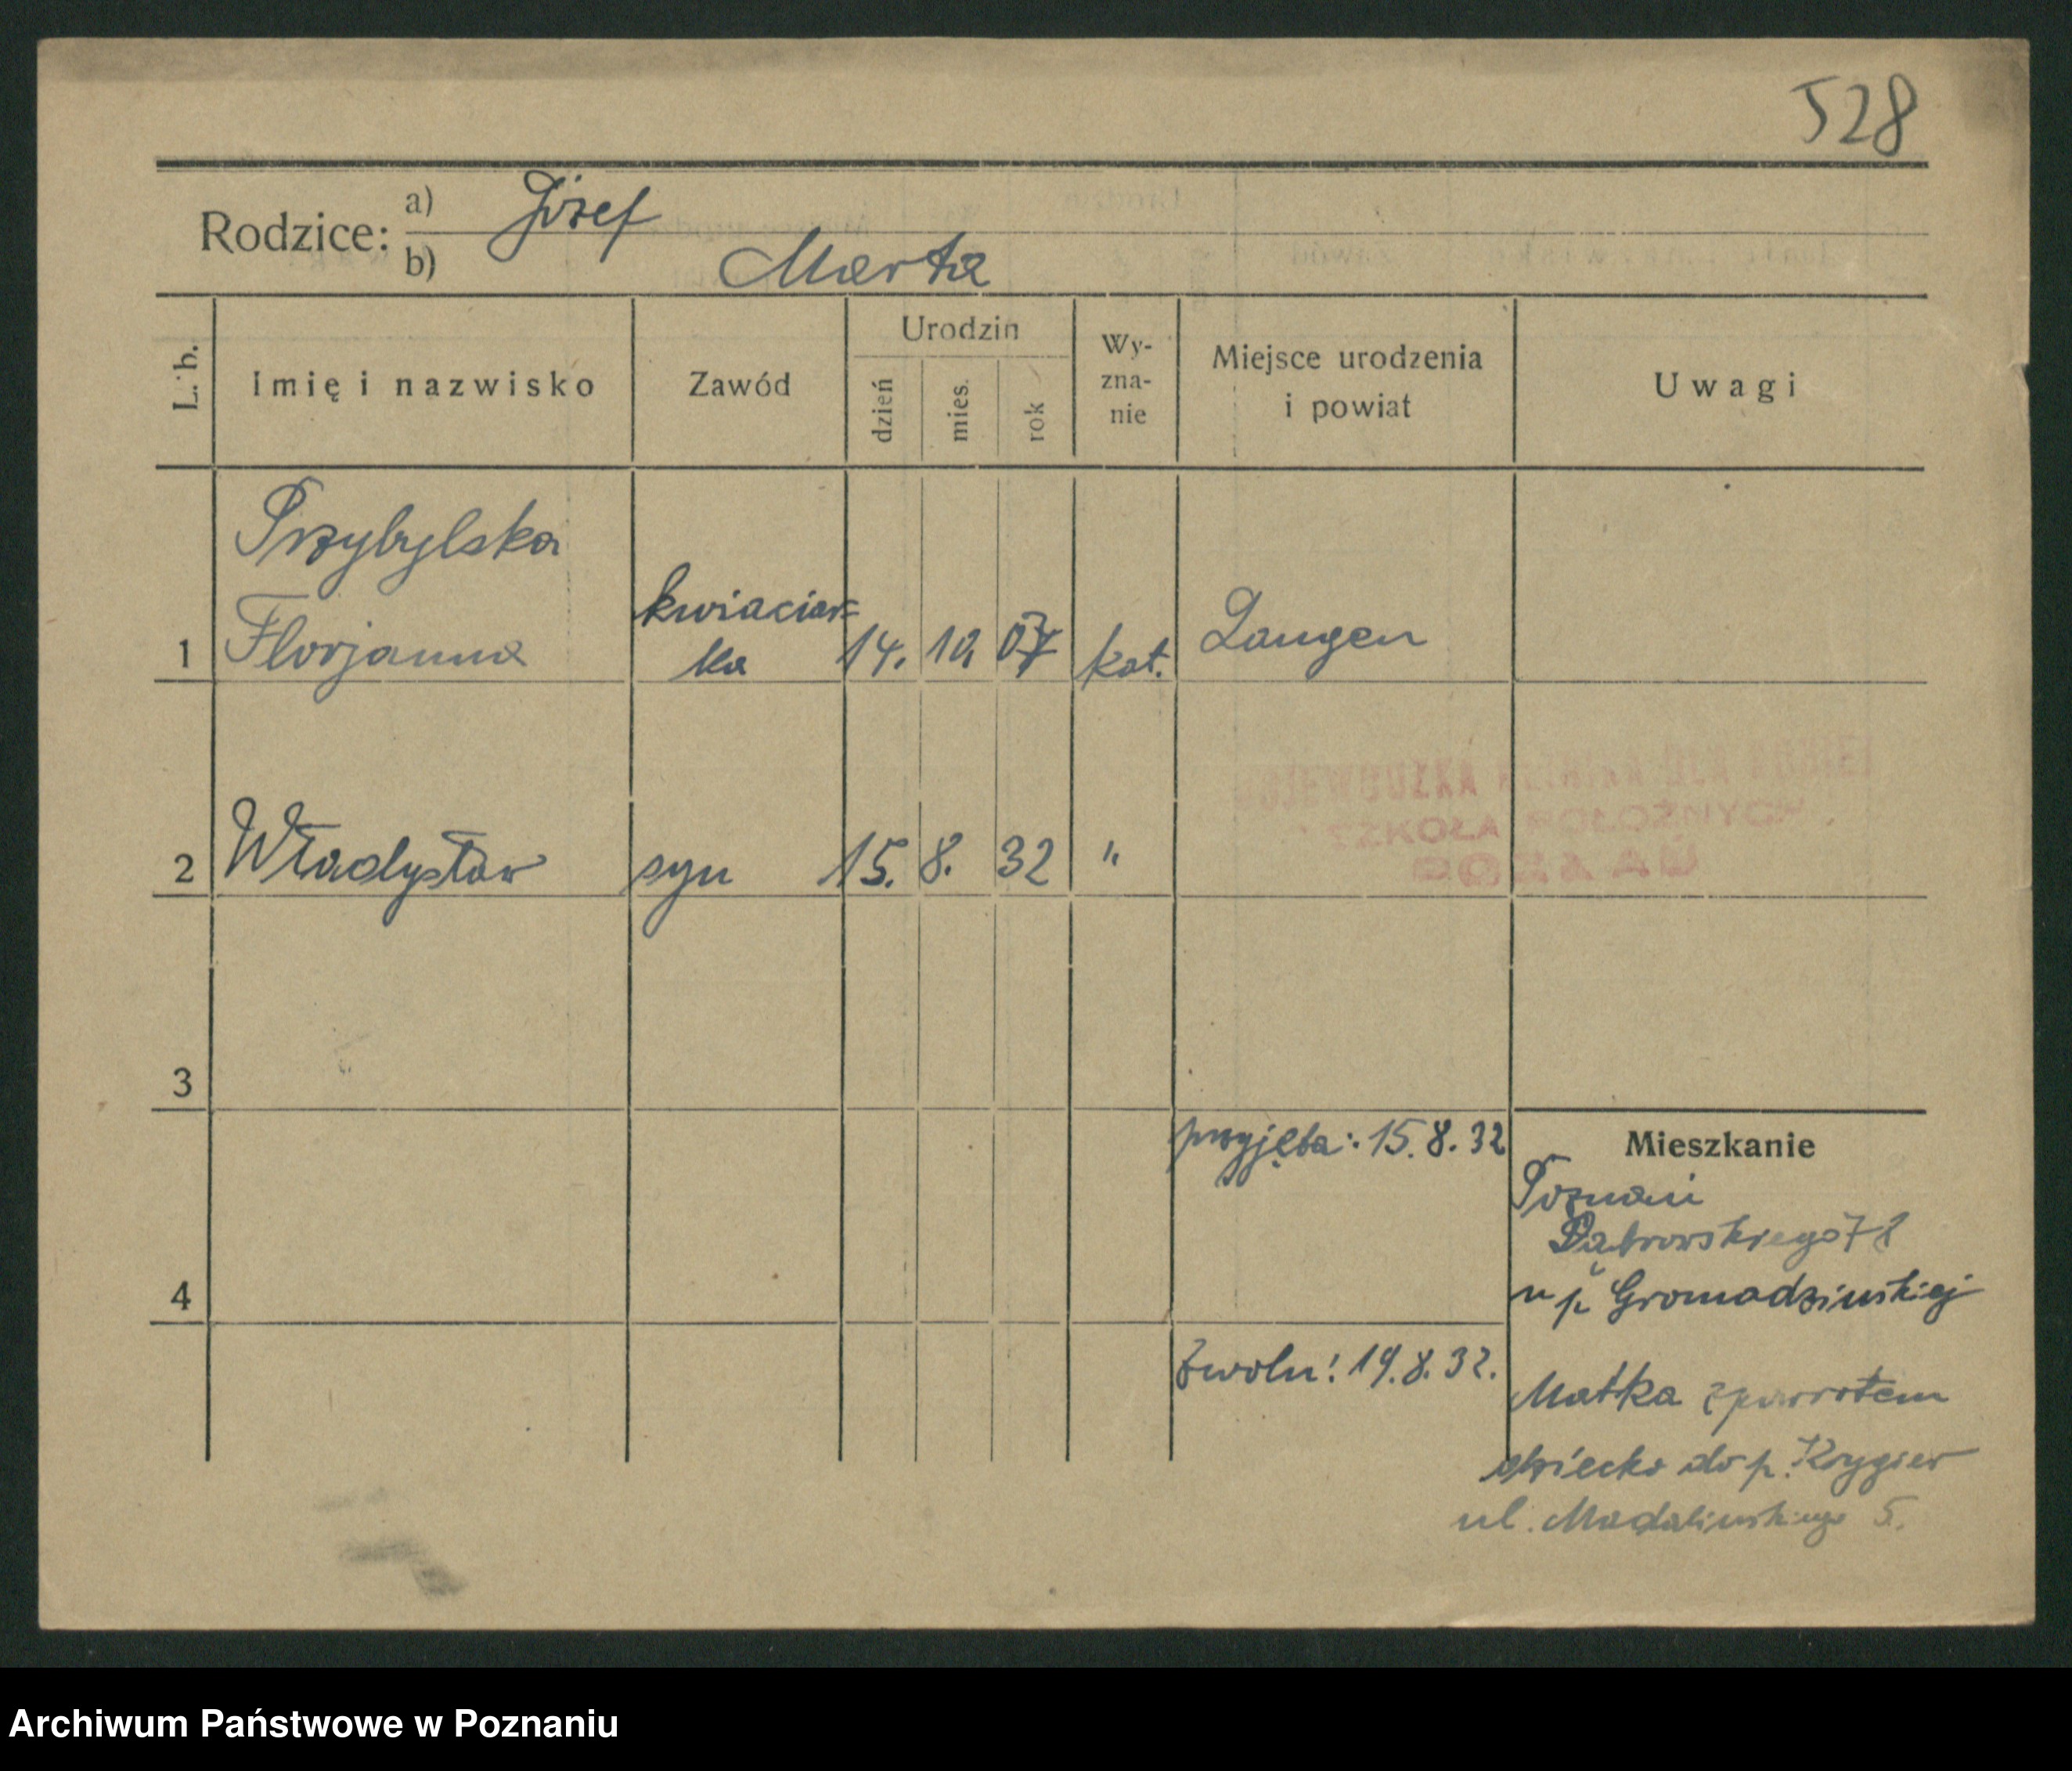 528
Rodzice: a) Józef
b) Marta
L. b.
Imię i nazwisko
Zawód
Urodzin
dzień
mies.
rok
Wy-
zna-
nie
Miejsce urodzenia
i powiat
Uwagi
Przybylska
Florjanna
kwiaciar=
ka
1
14. 10. 07
kat.
Langen
WOJEWÓDZKA KLINIKA DLA KOBIET
I SZKOŁA POŁOŻNYCH
POZNAŃ
2 Władysław syn 15. 8. 32 "
3
przyjęta: 15. 8. 32
Mieszkanie
Poznań
Dąbrowskiego
u p. Gromadzińskiej
4
Zwoln: 19. 8. 32.
Matka zpowrotem
dziecko do p. Krygier
ul. Madalińskiego 5.
Archiwum Państwowe w Poznaniu